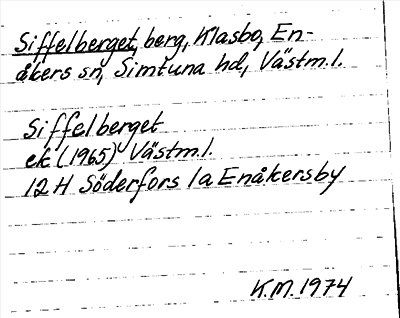 Siffelberget, berg, Klasbo, En-
åkers sn, Simtuna hd, Västm.l.
Siffelberget
ek (1965) Västm.l.
12 H Söderfors 1a Enåkersby
K.M. 1974